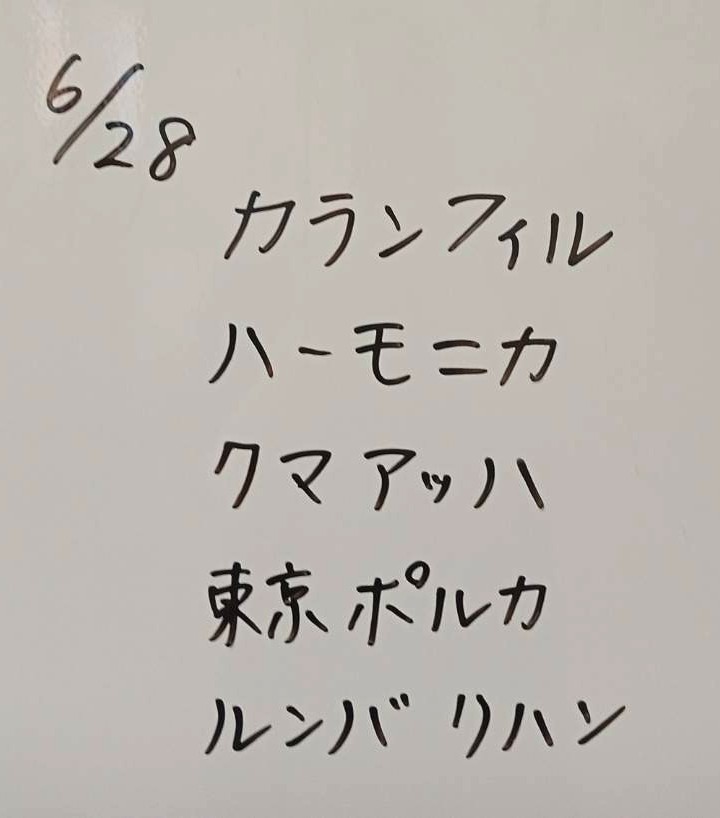 6/28
カランフィル
ハーモニカ
クマアッハ
東京ポルカ
ルンバ リハン